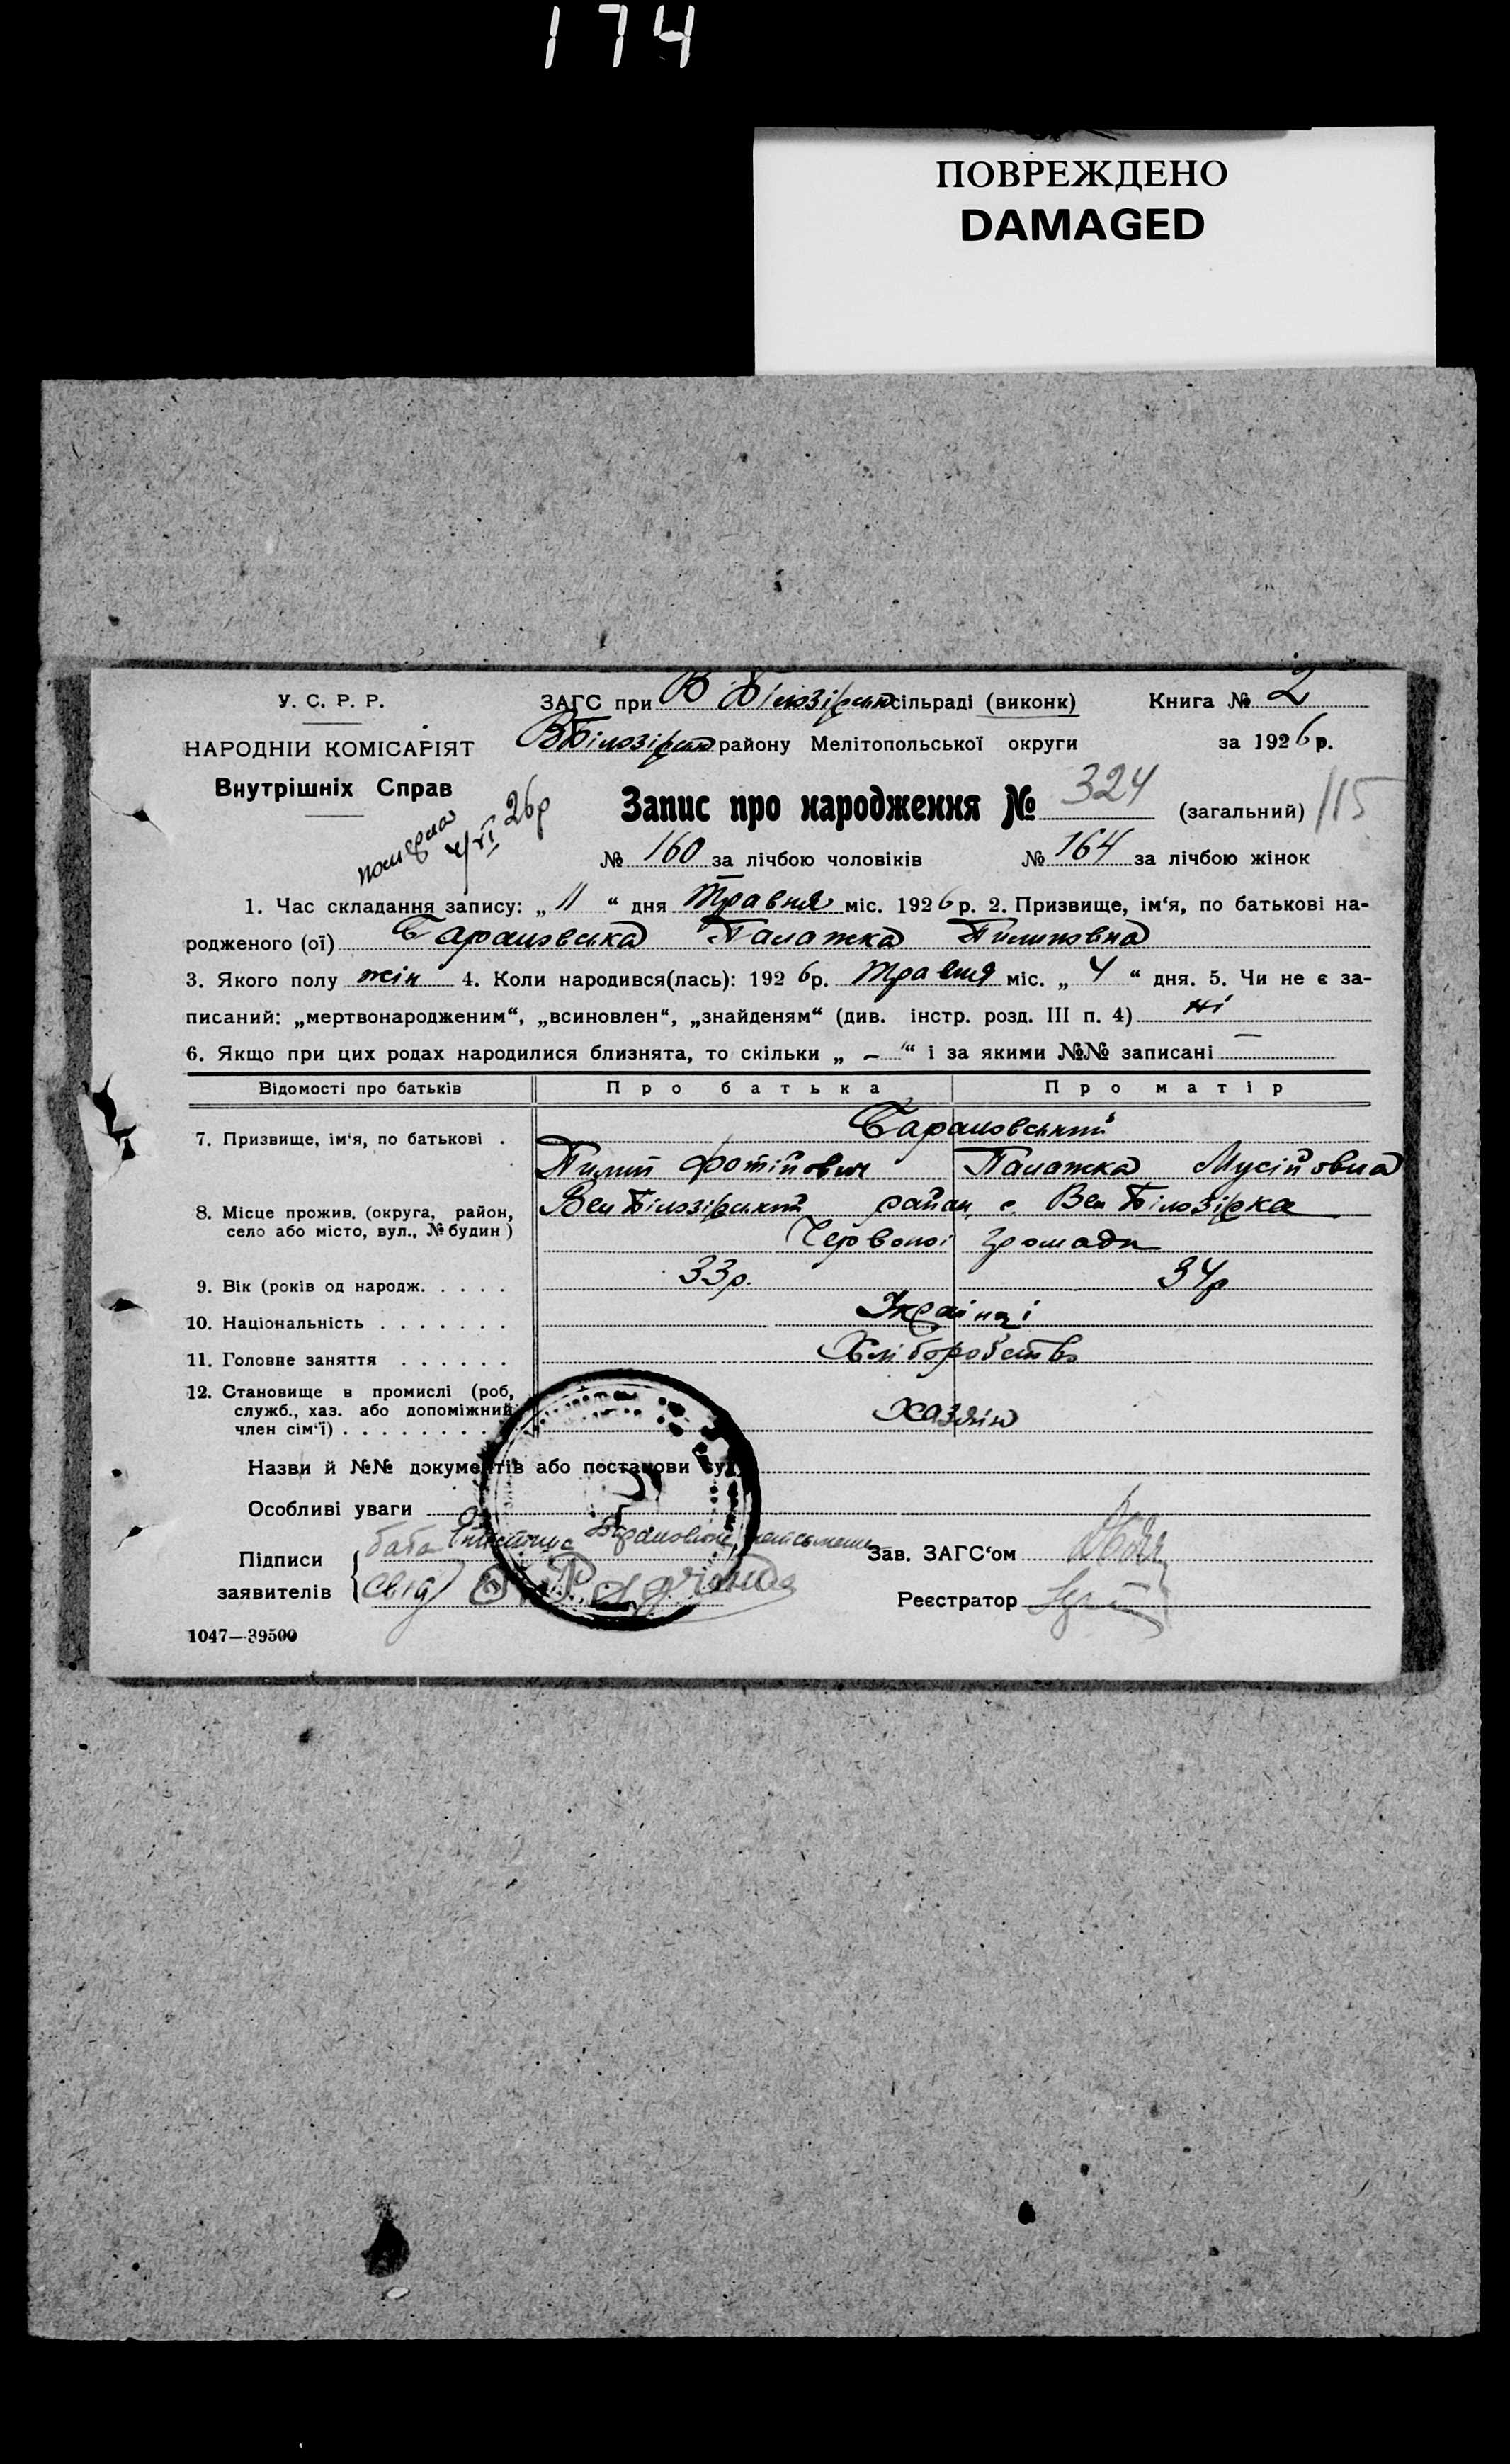 174
ПОВРЕЖДЕНО
DAMAGED
У. С. Р. Р.
НАРОДНІЙ КОМІСАРІЯТ
Внутрішніх Справ
померла 4/VI 26р
ЗАГС при В Білозірськ сільраді (виконк) Книга № 2
ВБілозірськ району Мелітопольської округи за 1926 р.
Запис про народження № 324 (загальний) 115
№ 160 за лічбою чоловіків № 164 за лічбою жінок
1. Час складання запису: „ 11 “ дня Травня міс. 1926 р. 2. Призвище, ім‘я, по батькові на-
родженого (ої) Барановська Палажка Пилиповна
3. Якого полу жін 4. Коли народився(лась): 1926р. Травня міс. „ 4 “ дня. 5. Чи не є за-
писаний: „мертвонародженим“, „всиновлен“, „знайденям“ (див. інстр. розд. III п. 4) ні
6. Якщо при цих родах народилися близнята, то скільки „ – “ і за якими №№ записані —
Відомості про батьків Про батька Про матір
7. Призвище, ім‘я, по батькові . Барановський
Пилип Фотійович Палажка Мусійовна
8. Місце прожив. (округа, район, Вел Білозірський район с. Вел Білозірка
село або місто, вул., № будин) Червоної громади
9. Вік (років од народж. . . . . 33р. 34р
10. Національність . . . . . . . Українці
11. Головне заняття . . . . . . Хліборобство
12. Становище в промислі (роб,
служб., хаз. або допоміжний хазяїн
член сім‘ї) . . . . . . . . .
Назви й №№ документів або постанови суду
Особливі уваги
Підписи баба Барановська неписьменна Зав. ЗАГС‘ом
заявителів свід Реєстратор
1047—39500